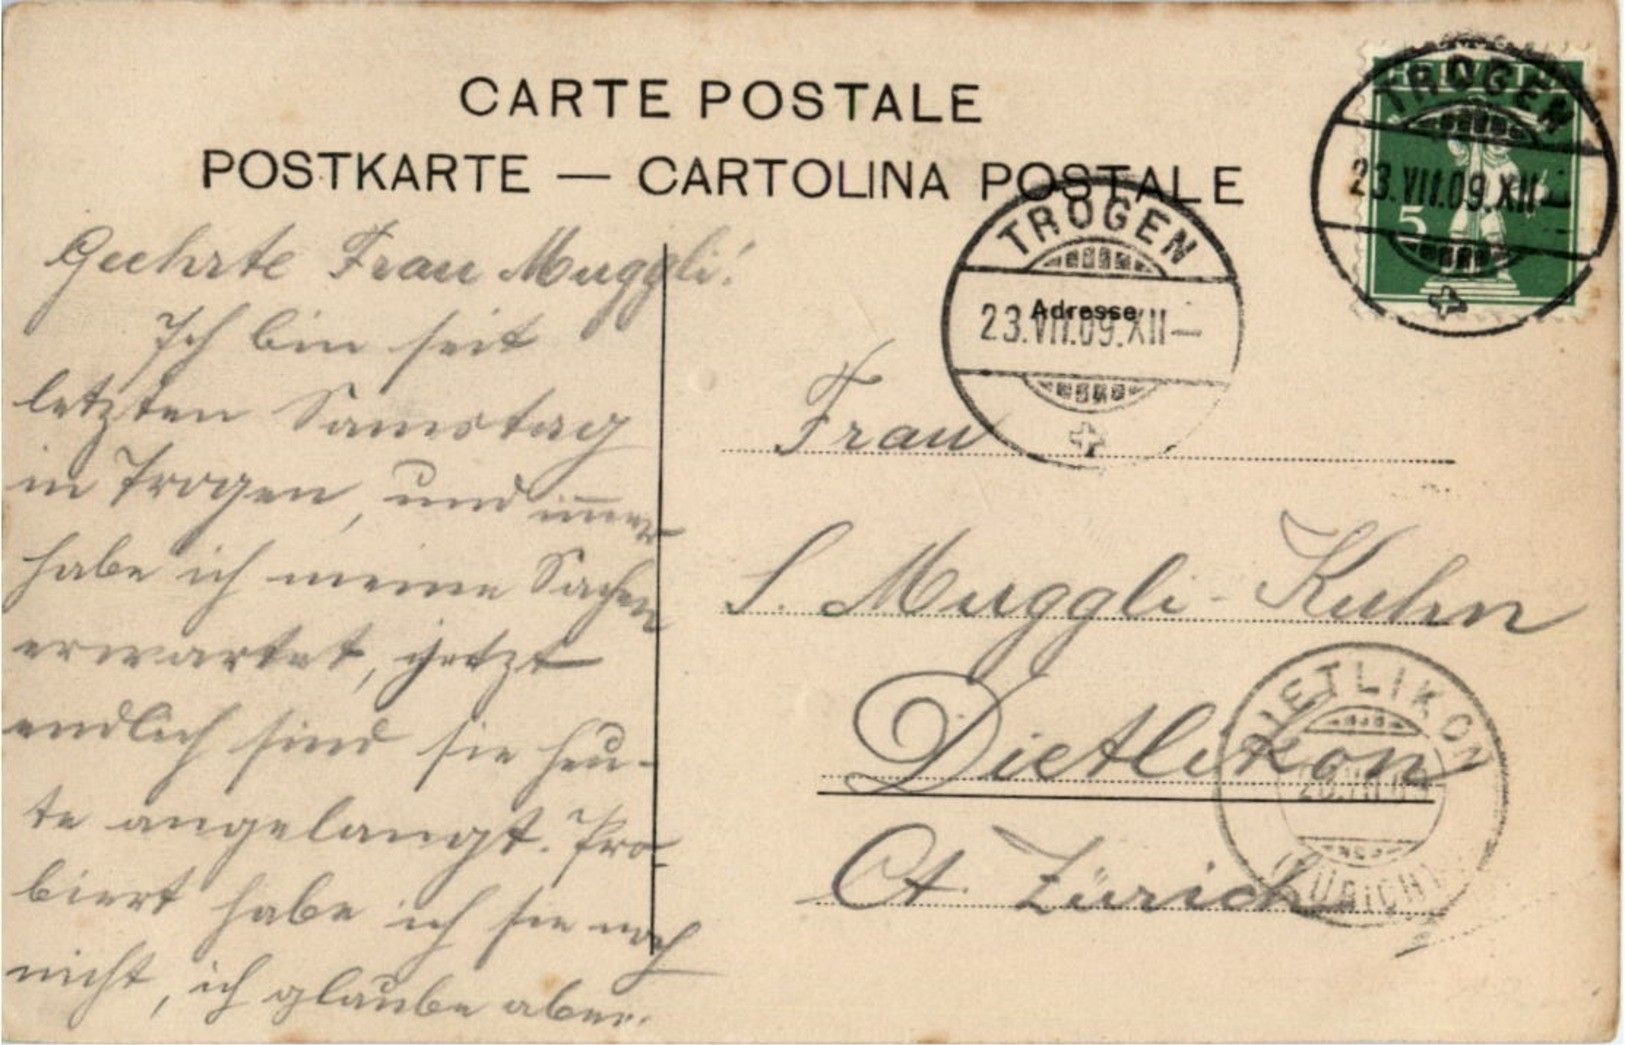 CARTE POSTALE
POSTKARTE — CARTOLINA POSTALE
HELVETIA
5
TROGEN
23.VII.09.XII—
TROGEN
23.VII.09.XII—
Adresse
Geehrte Frau Muggli!
Ich bin seit
letzten Samstag
in Trogen, und immer
habe ich meine Sachen
erwartet, jetzt
endlich sind sie heu-
te angelangt. Pro-
biert habe ich sie noch
nicht, ich glaube aber.
Frau
S. Muggli-Kuhn
Dietlikon
Ct. Zürich
DIETLIKON
(ZÜRICH)